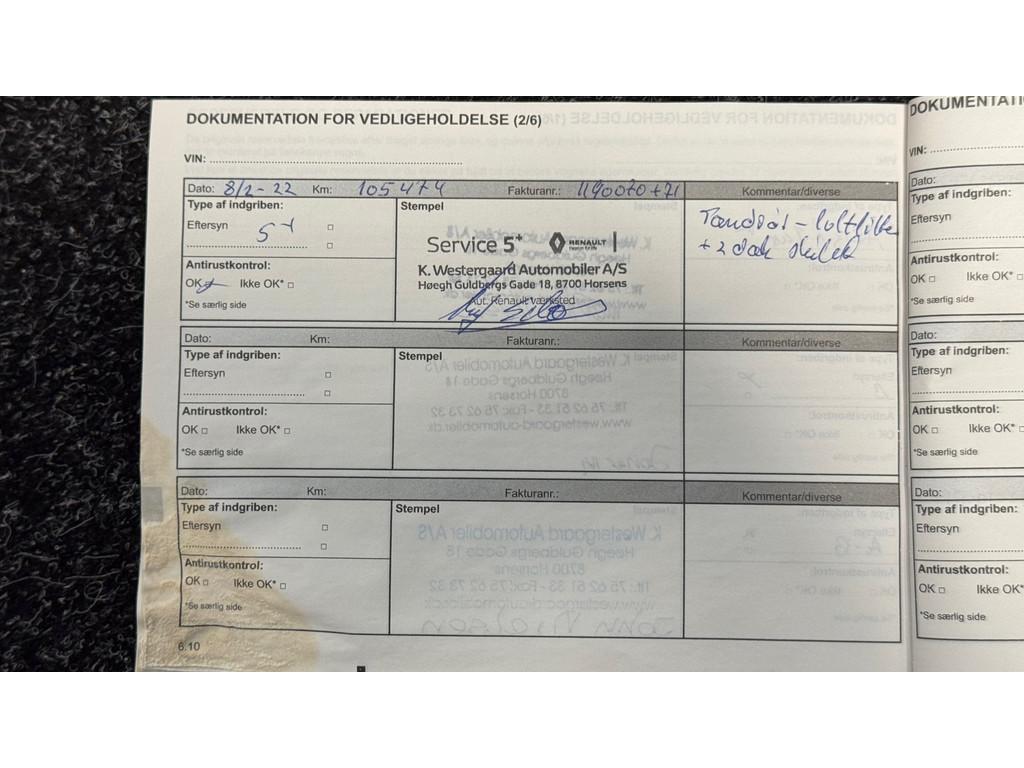 DOKUMENTATION FOR VEDLIGEHOLDELSE (2/6)
VIN:
Dato: 8/2-22 Km: 105474 Fakturanr.: Kommentar/diverse
Type af indgriben:
Stempel
Eftersyn 5+
Tændrør - luftfilter
+ 2 dæk skiftet
Service 5+ RENAULT
K. Westergaard Automobiler A/S
Høegh Guldbergs Gade 18, 8700 Horsens
Aut. Renault værksted
Antirustkontrol:
OK Ikke OK*
*Se særlig side
Dato: Km: Fakturanr.: Kommentar/diverse
Type af indgriben:
Stempel
Eftersyn
Antirustkontrol:
OK Ikke OK*
*Se særlig side
Dato: Km: Fakturanr.: Kommentar/diverse
Type af indgriben:
Stempel
Eftersyn
Antirustkontrol:
OK Ikke OK*
*Se særlig side
6.10
DOKUMENTATI
VIN:
Dato:
Type af indgriben:
Eftersyn
Antirustkontrol:
OK Ikke OK*
*Se særlig side
Dato:
Type af indgriben:
Eftersyn
Antirustkontrol:
OK Ikke OK*
*Se særlig side
Dato:
Type af indgriben:
Eftersyn
Antirustkontrol:
OK Ikke OK*
*Se særlig side